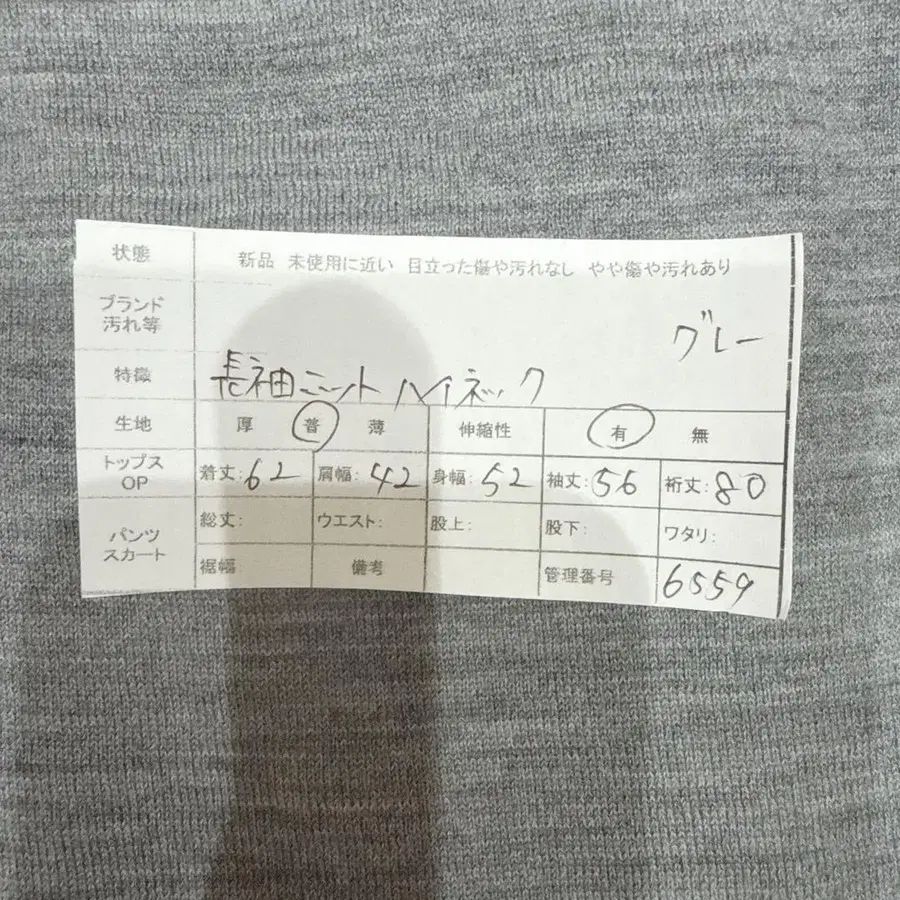 状態 新品 未使用に近い 目立った傷や汚れなし やや傷や汚れあり
ブランド
汚れ等
グレー
特徴 長袖ニット ハイネック
生地 厚 普 薄 伸縮性 有 無
トップス
OP
着丈:62 肩幅:42 身幅:52 袖丈:56 裄丈:80
パンツ
スカート
総丈: ウエスト: 股上: 股下: ワタリ:
裾幅 備考 管理番号 6559